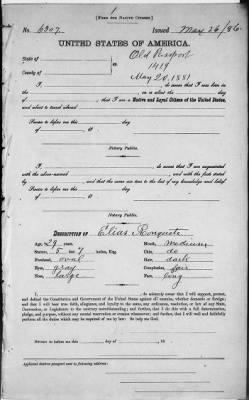 [FORM FOR NATIVE CITIZEN.]
No. 6307. Issued May 26/86
UNITED STATES OF AMERICA.
State of Old Passport
ss. 1419
County of May 20, 1881
I, do swear that I was born in
the on or about the day
of , that I am a Native and Loyal Citizen of the United States,
and about to travel abroad
Sworn to before me this day
of , 18
Notary Public.
I, do swear that I am acquainted
with the above-named , and with the facts stated
by him, and that the same are true to the best of my knowledge and belief.
Sworn to before me this day
of , 18
Notary Public.
DESCRIPTION OF Elias
Age, 29 years. Mouth, medium
Stature, 5 feet 7 inches, Eng. Chin, do
Forehead, oval Hair, dark
Eyes, gray Complexion, fair
Nose, large Face, long
I, , do solemnly swear that I will support, protect,
and defend the Constitution and Government of the United States against all enemies, whether domestic or foreign;
and that I will bear true faith, allegiance, and loyalty to the same, any ordinance, resolution, or law of any State,
Convention, or Legislature to the contrary notwithstanding; and further, that I do this with a full determination,
pledge, and purpose, without any mental reservation or evasion whatsoever; and further, that I will well and faithfully
perform all the duties which may be required of me by law: So help me God.
Sworn to before me this day of , 18
Applicant desires passport sent to following address: